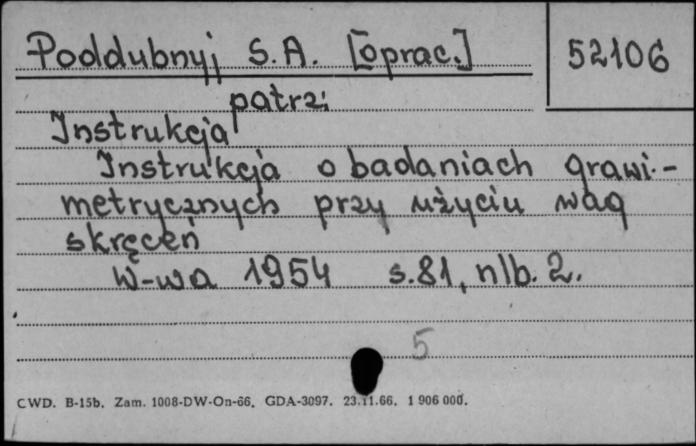 Poddubnyj S.A. [oprac.] 52106
patrz:
Instrukcja
Instrukcja o badaniach grawi-
metrycznych przy użyciu wag
skręceń
W-wa 1954 s.81, nlb. 2.
5
CWD. B-15b. Zam. 1008-DW-On-66. GDA-3097. 23.11.66. 1 906 000.